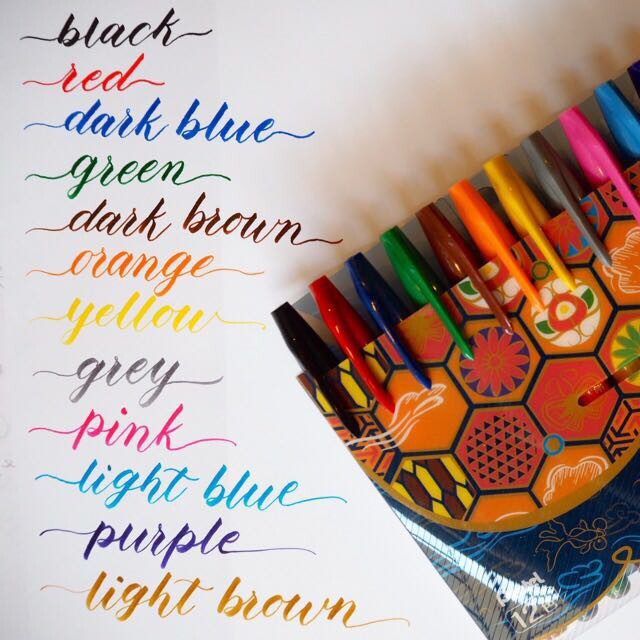 black
red
dark blue
green
dark brown
orange
yellow
grey
pink
light blue
purple
light brown